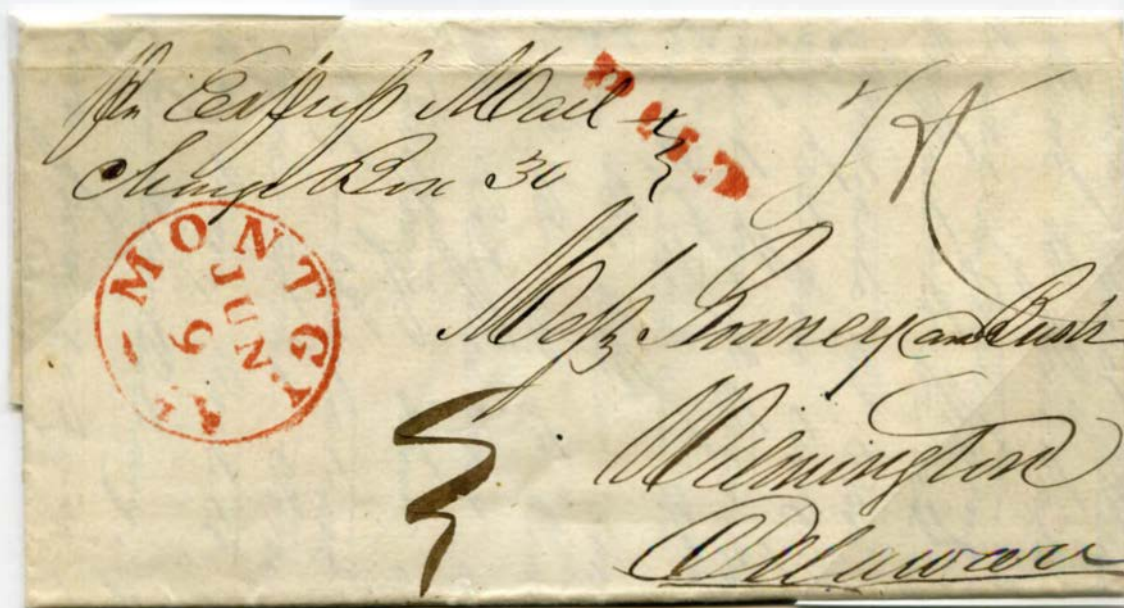 Pr Express Mail
Charge Box 30
PAID
MONTGY Al
JUN
9
Mess Bonney and Bush
Wilmington
Delaware